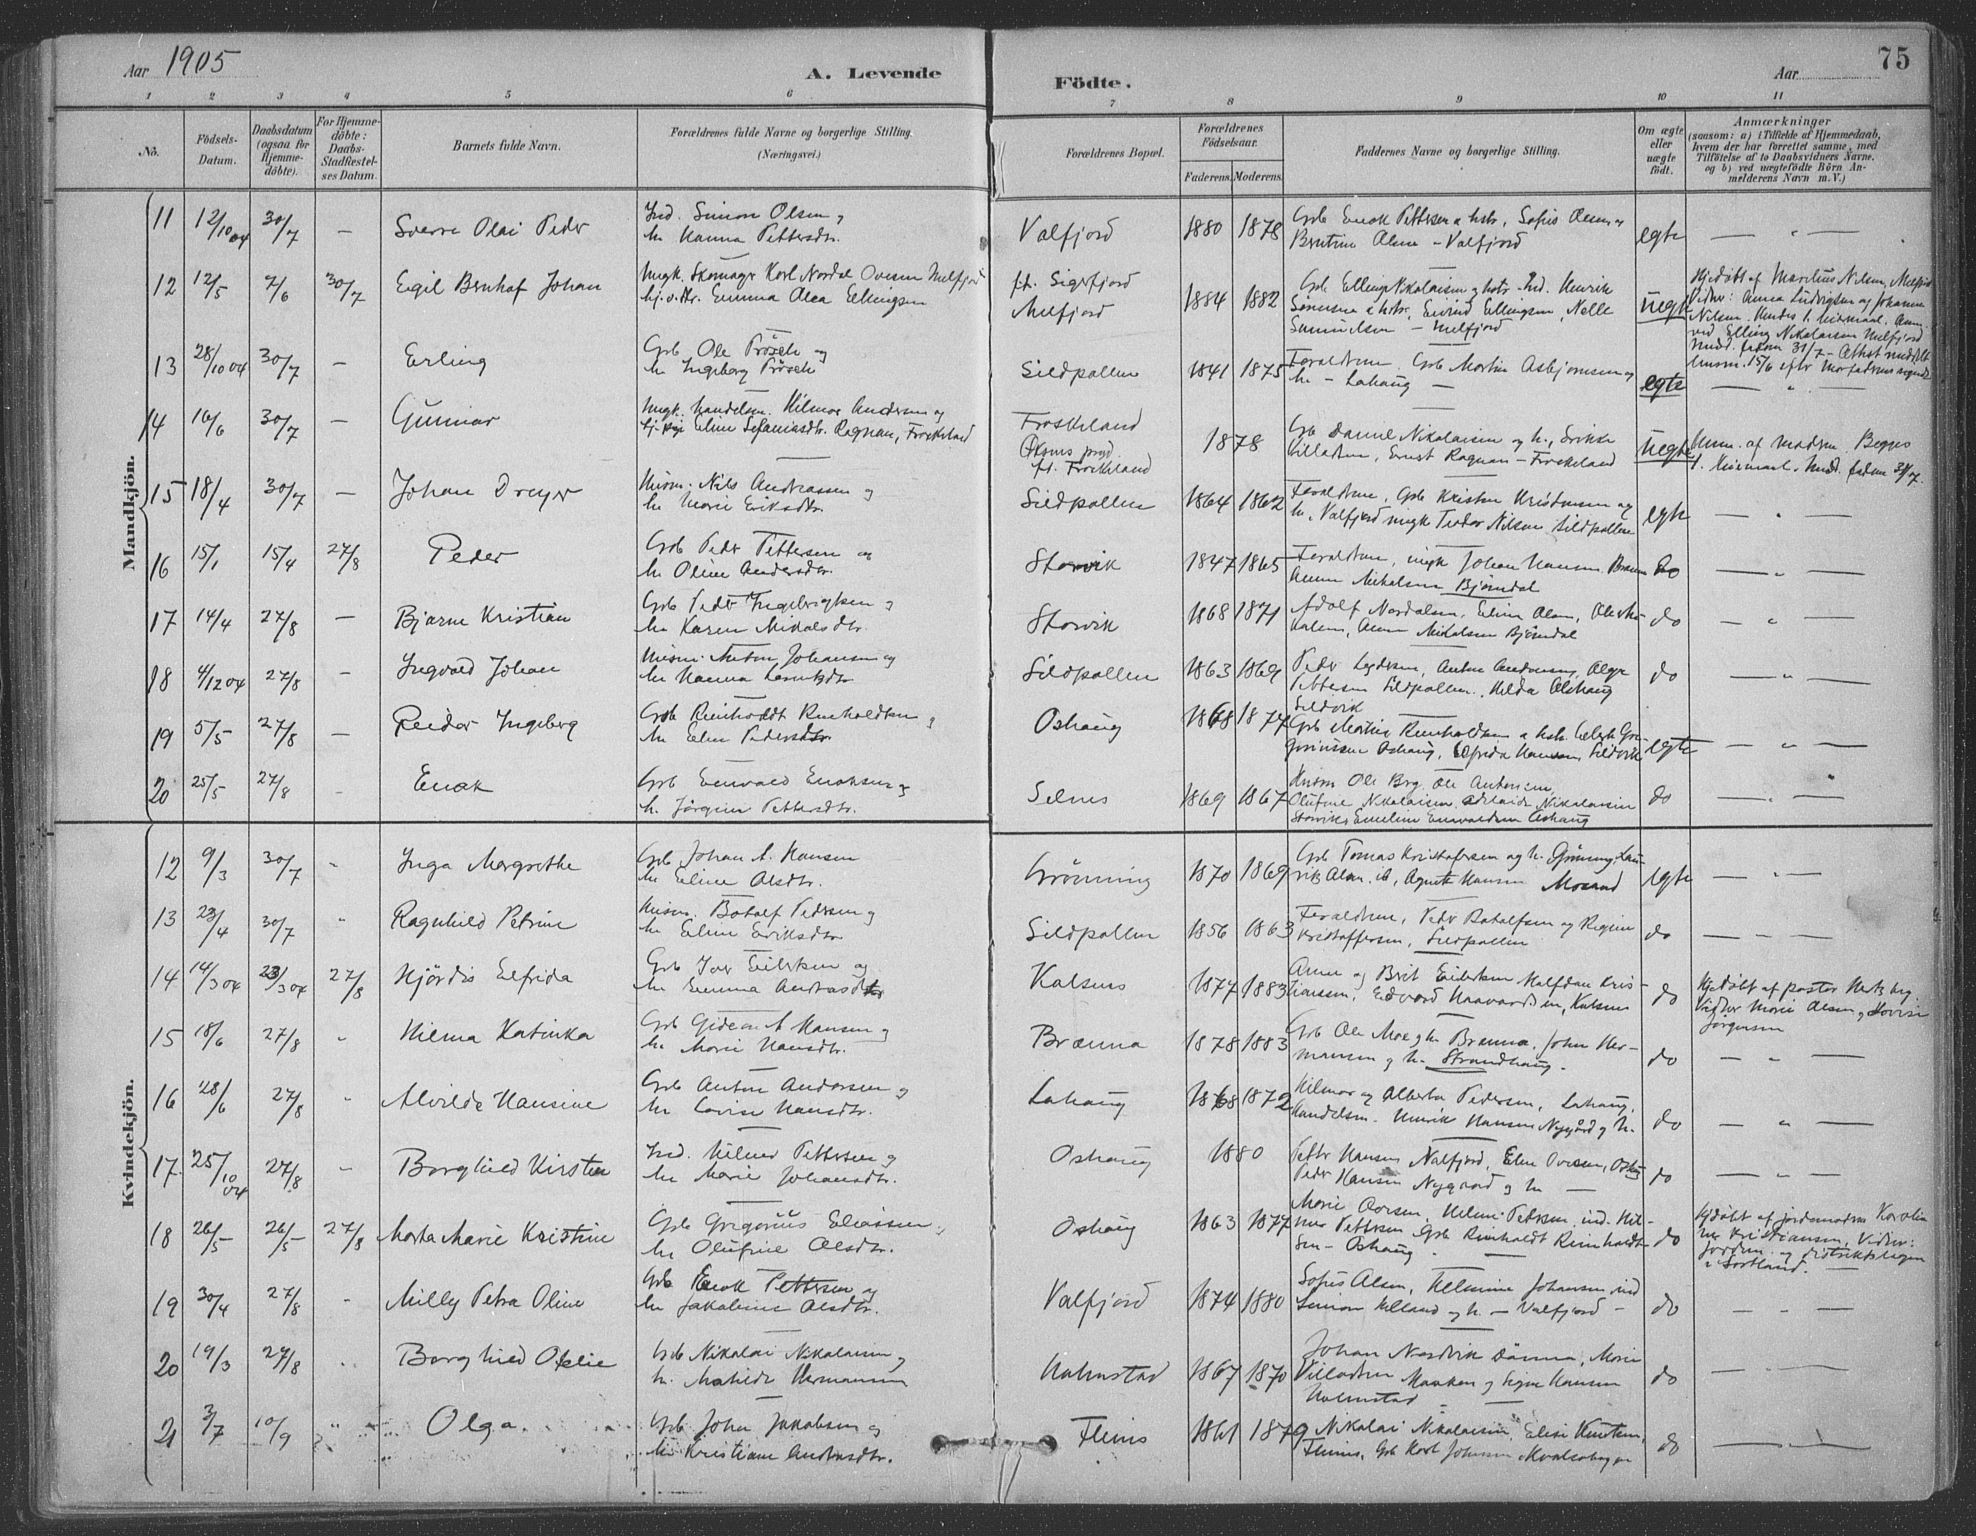 Aar 1905
A. Levende
Födte.
Aar
75
1 2 3 4 5 6 7 8 9 10 11
No.
Födsels-Datum.
Daabsdatum (ogsaa for Hjemme-döbte).
For Hjemme-döbte: Daabs-Stadfæstel-ses Datum.
Barnets fulde Navn.
Forældrenes fulde Navne og borgerlige Stilling. (Næringsvei.)
Forældrenes Bopæl.
Forældrenes Födselsaar.
Faderens. Moderens.
Faddernes Navne og borgerlige Stilling.
Om ægte eller uægte födt.
Anmærkninger
(saasom: a) i Tilfælde af Hjemmedaab, hvem der har forrettet samme, med Tilföielse af to Daabsvidners Navne, og b) ved uægtefödte Börn An-melderens Navn m. V.)
Mandkjön.
11 12/10 04 30/7 — Sverre Olai Peder Ind. Simon Olsen og
hu Hanna Pettersdtr. Valfjord 1880 1878 Grb Enok Pettersen &amp; hstr, Sofus Olsen og
Bertine Olsen – Valfjord egte — " —
12 12/5 7/6 30/7 Eigil Bernhof Johan Ungk. Skomagr Karl Nordal Ovesen Melfjord
hj.v.dtr. Emma Alea Ellingsen ft. Sigerfjord
Melfjord 1884 1882 Grb Elling Nikolaisen og hstr Ind. Henrik
Sørensen &amp; hstr, Eivind Ellingsen, Nelle
Samuelsen – Melfjord uegte Hjdøbt af Marelius Nilsen, Melfjord
Vidner: Anna Ludvigsen og Johanna
Nilsen. Hendes 1. leiermaal. Anm.
ved Elling Nikolaisen Melfjord
13 28/10 04 30/7 — Erling Grb Ole Prösch og
hu Ingeborg Prösch Sildpollen 1841 1875 Foreldrene, Grb Martin Asbjørnsen og
hu – Lahaug — egte — " —
14 16/6 30/7 — Gunnar Ungk. handelsm. Hilmar Andersen og
Elen Sefaniasdtr. Ragnan, Froskeland Froskeland
Øksnes prgd.
ft. Froskeland 1878 Grb Daniel Nikolaisen og h.,
Villadsen, Ernst Ragnan – Froskeland uegte Anm. af modren Begges
1. leiermaal. Medd. faderen 31/7.
15 18/4 30/7 — Johan Dreyer Husm. Nils Andreassen og
hu Marie Eriksdtr. Sildpollen 1864 1862 Foreldrene, Grb Kristen Kristensen og
h., Valfjord ungk Teodor Nilsen Sildpollen egte — " —
16 15/1 15/4 27/8 Peder Grb Peder Pettersen og
hu Oline Andersdtr. Storvik 1847 1865 Foreldrene, ungk Johan Hansen Brenna
Anna Mikalsen Bjørndal do — " —
17 14/4 27/8 — Bjarne Kristian Grb Peder Ingebrigtsen og
hu Karen Mikalsdtr. Storvik 1868 1871 Adolf Nordalsen, Eline Olsen, Ole Mi-
kalsen, Anna Mikalsen Bjørndal do — " —
18 4/12 04 27/8 — Ingvald Johan Husm. Anton Johansen og
hu Hanna Lorentsdtr. Sildpollen 1863 1869 Peder Lydersen, Anton Andersen, Olga
Pettersen Sildpollen, Hilda Olshaug
Sildvik do — " —
19 5/5 27/8 — Reidar Ingeberg Grb Reinholdt Reinholdtsen og
hu Elen Pedersdtr. Oshaug 1868 1877 Grb Martin Reinholdtsen &amp; hstr Edvk Gre-
goriussen Oshaug, Elfrida Hansen, Sildvik egte — " —
20 25/5 27/8 - Enok Grb Edvald Enoksen og
h. Jørgine Pettersdtr. Selnes 1869 1867 Husm Ole Berg, Ole Antonsen,
Olufine Nikolaisen, Adelaide Nikolaisen
Storvik, Emeline Enevaldsen Oshaug do — " —
Kvindekjön.
12 9/3 30/7 " Inga Margrethe Grb Johan A. Hansen
hu Eline Olsdtr. Grønning 1870 1869 Grb Tomas Kristofersen og h. Grønning, Lau-
rits Olsen ib, Agnete Hansen Mosand egte — " —
13 23/4 30/7 " Ragnhild Petrine Husm. Botolf Pedersen og
hu Elen Eriksdtr. Sildpollen 1856 1863 Foreldrene, Peder Botolfsen og Regine
Kristoffersen, Sildpollen do — " —
14 14/3 04 23/3 04 27/8 Hjördis Elfrida Grb Ivar Eilertsen og
hu Emma Andreasdtr Kalsnes 1877 1883 Anne og Brit Eilertsen Halfdan Kris-
tianssen, Edvard Haavardsen, Kalsnes do Hjdöbt af pastor Hertzberg.
Vidner Marie Olsen og Lovise
Jørgensen
15 18/6 27/8 " Hilma Katinka Grb Gideon A Hansen og
hu Marie Hansdtr. Brænna 1878 1883 Grb Ole Moe og hu Brænna, John Her-
mansen og h. Strandhaug. do — " —
16 28/6 27/8 " Alvilde Hansine Grb Anton Andersen og
hu Lovise Hansdtr. Lahaug 1868 1872 Hilmar og Alberta Pedersen, Lahaug,
Handelsm. Henrik Hansen Nygård og h. do — " —
17 25/10 04 27/8 " Borghild Kirstine Ind. Hilmer Pettersen og
hu Marie Johansdtr. Oshaug 1880 Petter Hansen Valfjord, Elen Ovesen, Oshaug
Peder Hansen Nygaard og hu — do — " —
18 26/5 26/5 27/8 Marta Marie Kristine Grb Gregorius Eliassen og
hu Olufine Olsdtr. Oshaug 1863 1877 Marie Aarsen, Helmi Petersen, ind. Hil-
mer Pettersen Grb Reinholdt Reinholdt-
sen – Oshaug. — do Hjdøbt af jordemoderen Karoli-
ne Kristiansen, Vidner:
Jordm. og distriktslægen
i Sortland.
19 30/4 27/8 " Milly Petra Oline Grb Enok Pettersen og
hu Jakobine Olsdtr. Valfjord 1874 1880 Sofus Olsen, Helmine Johansen, ind
Simon Helland og h. – Valfjord – do — " —
20 19/3 27/8 " Borghild Otelie Grb Nikolai Nikolaisen og
h. Matilde Hermansen Holmstad 1867 1870 Johan Nordvik Sånna, Marie
Villadsen Maaken og Signe Hansen
Holmstad — do — " —
21 3/7 10/9 " Olga. Grb John Jakobsen og
hu Kristiane Andreasdtr. Flenes 1861 1879 Nikolai Nikolaisen, Elise Knutsen,
Flenes, Grb Karl Johansen Kvalsøhagen do — " —